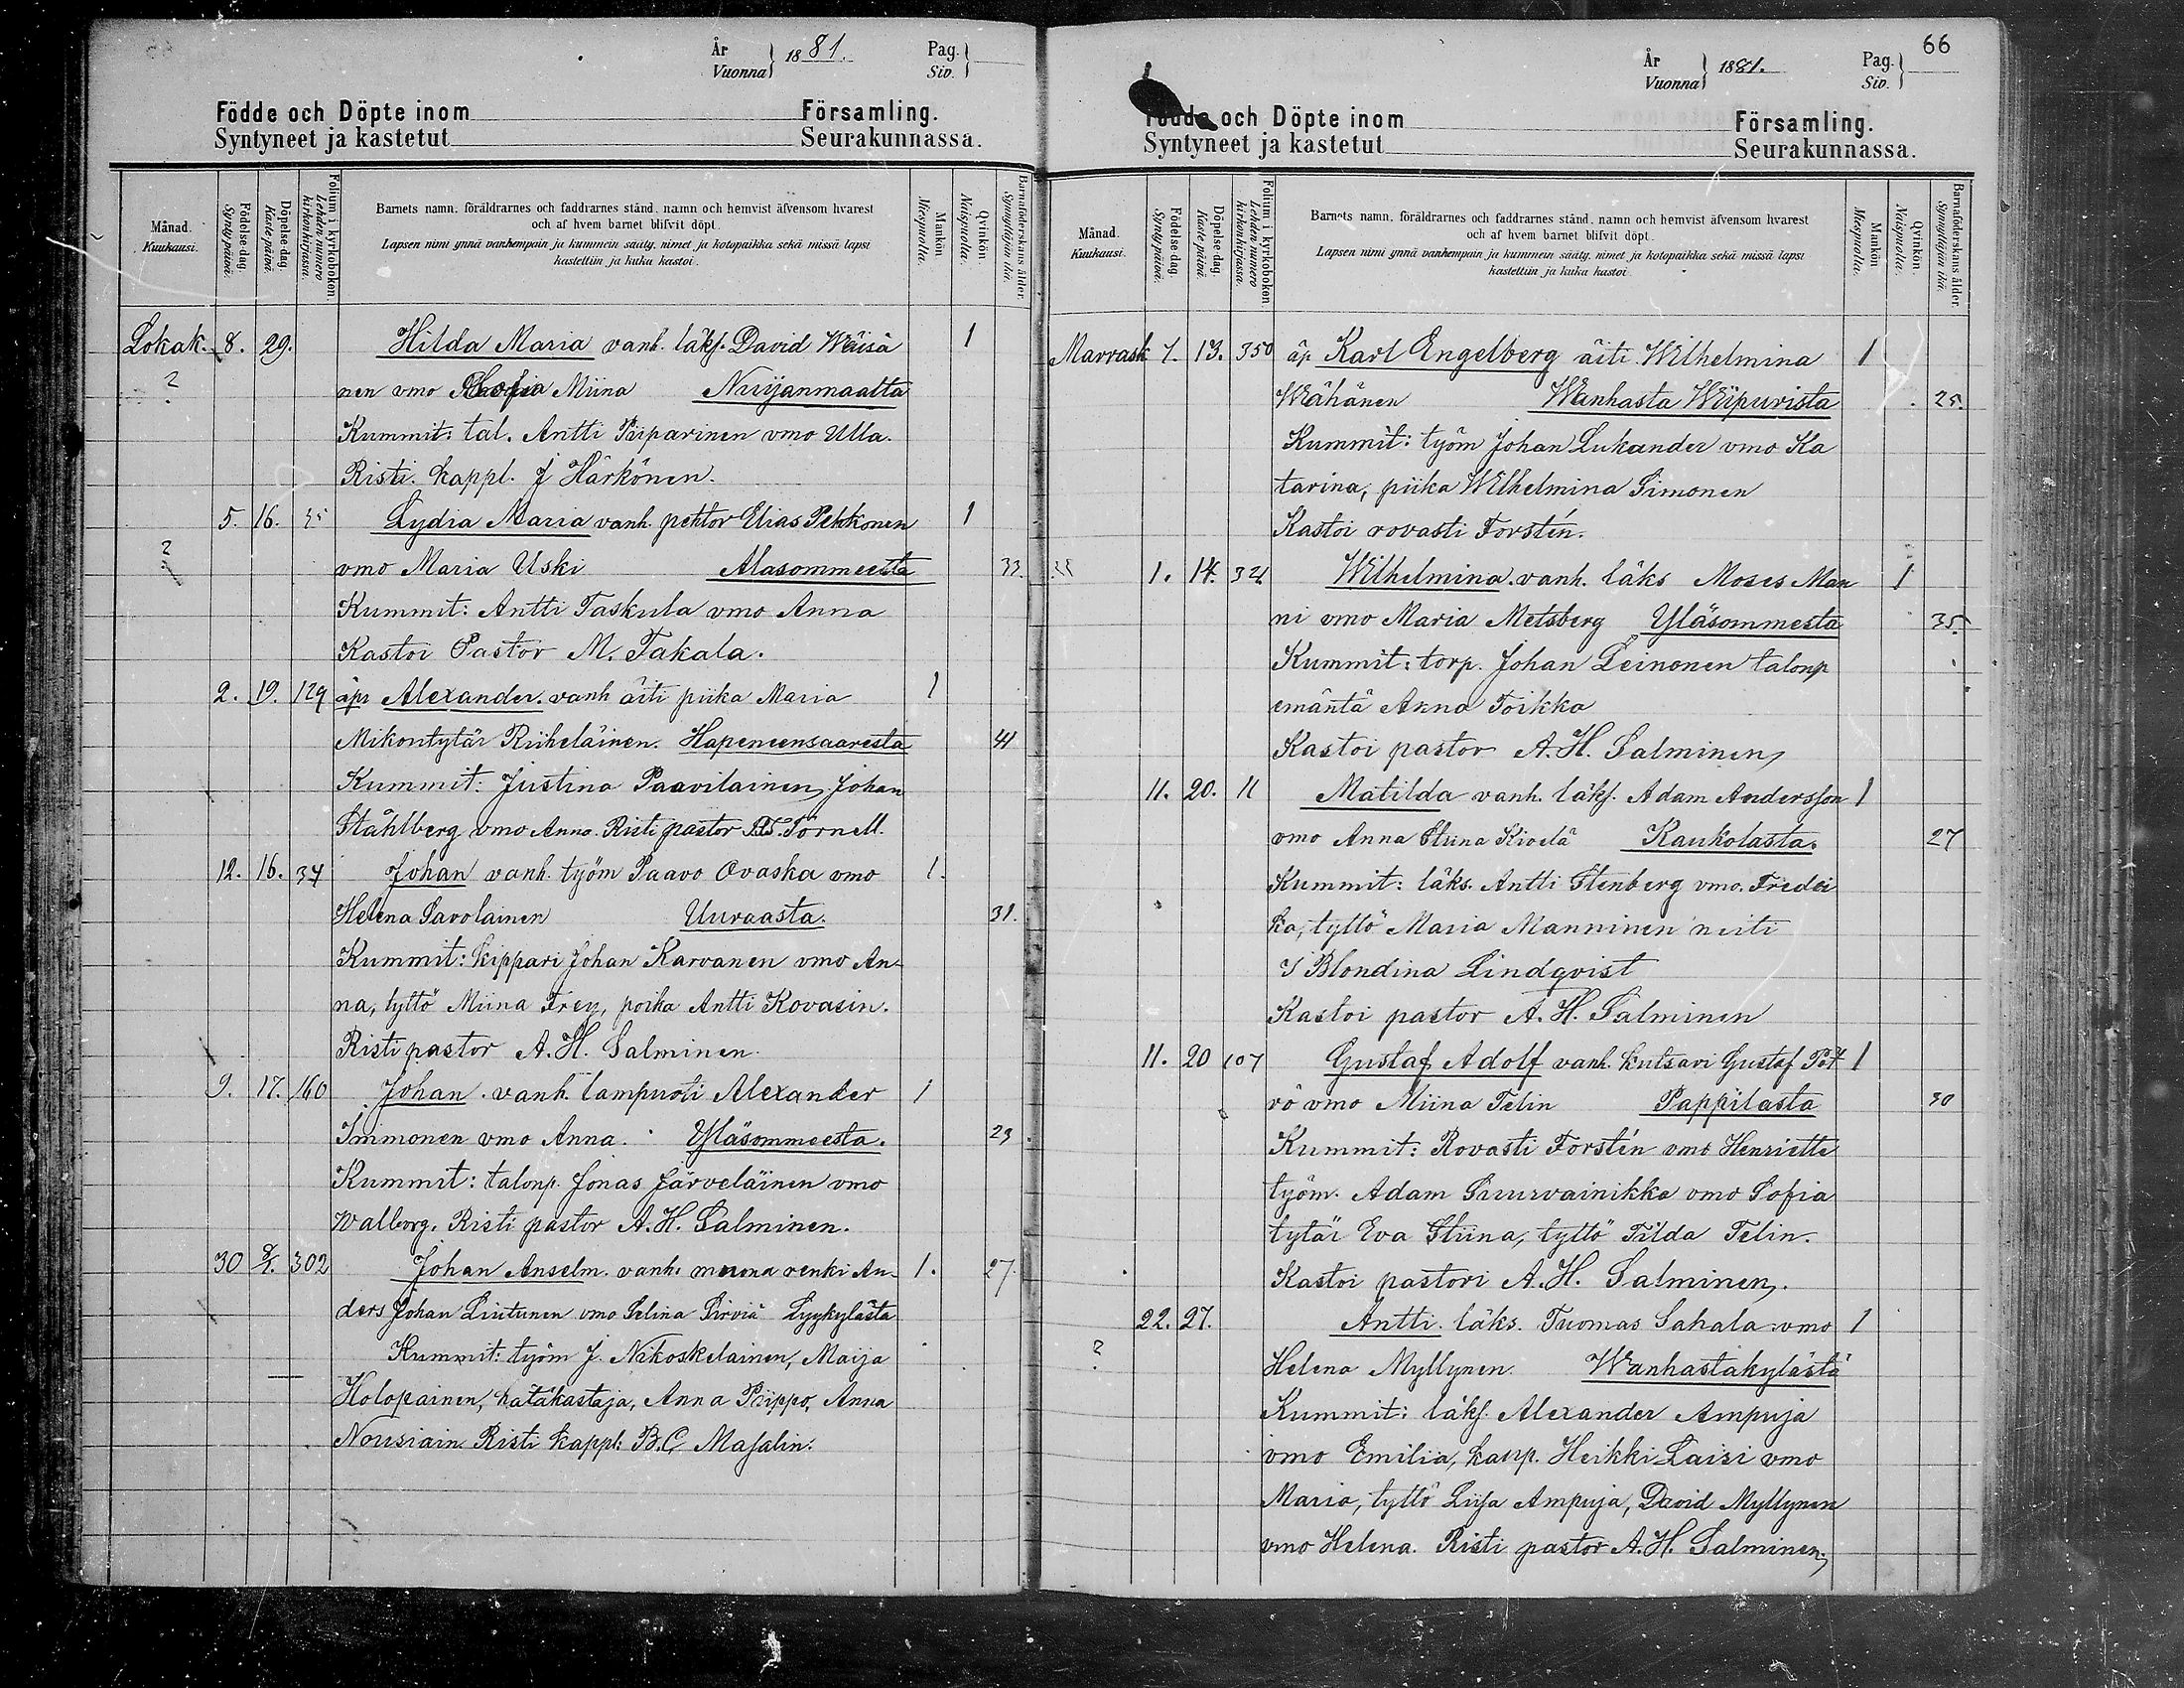 År
Vuonna } 1881.
Pag.
Siv. }
Födde och Döpte inom Församling.
Syntyneet ja kastetut Seurakunnassa.
Månad.
Kuukausi.
Födelse-dag.
Synty päivä.
Döpelse-dag.
Kaste päivä.
Folium i kyrkoboken.
Lehden numero kirkonkirjassa.
Barnets namn, föräldrarnes och faddrarnes stånd, namn och hemvist äfvensom hvarest
och af hvem barnet blifvit döpt.
Lapsen nimi ynnä vanhempain ja kummein sääty, nimet ja kotopaikka sekä missä lapsi
kastettiin ja kuka kastoi.
Mankön.
Miespuolia.
Qvinkön.
Naispuolia.
Barnaföderskans ålder.
Synnyttäjän ikä.
Lokak. 8. 29. Hilda Maria vanh. läksʃ. David Wäisä 1
? nen vmo Sofia Miina Nuijanmaalta
Kummit: tal. Antti Piiparinen vmo Ulla.
Risti. kappl. J Härkönen.
5. 16. 35 Lydia Maria vanh. pehtor Elias Pekkonen 1
? vmo Maria Uski Alasommeesta 33.
Kummit: Antti Taskula vmo Anna
Kastoi Pastor M. Takala.
2. 19. 129 äpr Alexander. vanh äiti piika Maria 1
Mikontytär Riiheläinen. Hapeneensaaresta 41
Kummit: Justina Paavilainen, Johan
Ståhlberg vmo Anna. Risti pastor Törnell.
12. 16. 34 Johan vanh. työm Paavo Ovaska vmo 1.
Helena Savolainen Uuraasta. 31.
Kummit: kippari Johan Karvanen vmo An-
na, tyttö Miina Frey, poika Antti Kovasin.
Risti pastor A. H. Salminen.
9. 17. 160 Johan. vanh. lampuoti Alexander 1
Immonen vmo Anna. Yläsommeesta. 29.
Kummit: talonp. Jonas Järveläinen vmo
Walborg. Risti pastor A. H. Salminen.
30 302 Johan Anselm. vanh. renki An- 1. 27.
ders Johan Liutunen vmo Selina Sirviä Lyykylästä
Kummit: työm J. Nikoskelainen, Maija
Holopainen, hätäkastaja, Anna Piippo, Anna
Nousiain Risti kappl: B. C. Masalin.
66
År
Vuonna } 1881.
Pag.
Siv. }
Födde och Döpte inom Församling.
Syntyneet ja kastetut Seurakunnassa.
Månad.
Kuukausi.
Födelse-dag.
Synty päivä.
Döpelse-dag.
Kaste päivä.
Folium i kyrkoboken.
Lehden numero kirkonkirjassa.
Barnets namn, föräldrarnes och faddrarnes stånd, namn och hemvist äfvensom hvarest
och af hvem barnet blifvit döpt.
Lapsen nimi ynnä vanhempain ja kummein sääty, nimet ja kotopaikka sekä missä lapsi
kastettiin ja kuka kastoi.
Mankön
Miespuolia.
Qvinkön.
Naispuolia.
Barnaföderskans ålder.
Synnyttäjän ikä.
Marrask 1. 13. 350 äp Karl Engelberg äiti Wilhelmina 1
Wähänen Wanhasta Wiipurista 25.
Kummit: työm Johan Lukander vmo Ka
tarina, piika Wilhelmina Simonen
Kastoi rovasti Forstén.
1. 14. 321 Wilhelmina. vanh. läks Moses Man 1
ni vmo Maria Metsberg Yläsommesta 35.
Kummit: torp. Johan Leinonen talonp
emäntä Anna Toikka
Kastoi pastor A. H. Salminen,
11. 20. 11 Matilda vanh. läksʃ. Adam Andersson 1
vmo Anna Stiina Kivelä Kaukolasta. 27
Kummit: läks. Antti Stenberg vmo. Fredri
ka, tyttö Maria Manninen neiti
I Blondina Lindqvist
Kastoi pastor A. H. Salminen
11. 20 107 Gustaf Adolf vanh. kutsari Gustaf Pet 1
rö vmo Miina Telin Pappilasta 30
Kummit: Rovasti Forstén vmo Henriette
työm. Adam Suurvainikka vmo Sofia
tytär Eva Stiina, tyttö Tilda Telin.
Kastoi pastori A. H. Salminen,.
22. 27. Antti. läks. Tuomas Sahala vmo 1
? Helena Myllynen. Wanhastakylästä
Kummit: läksʃ. Alexander Ampuja
vmo Emilia, kaup. Heikki Laisi vmo
Maria, tyttö Liisa Ampuja, David Myllynen
vmo Helena. Risti pastor A. H. Salminen,